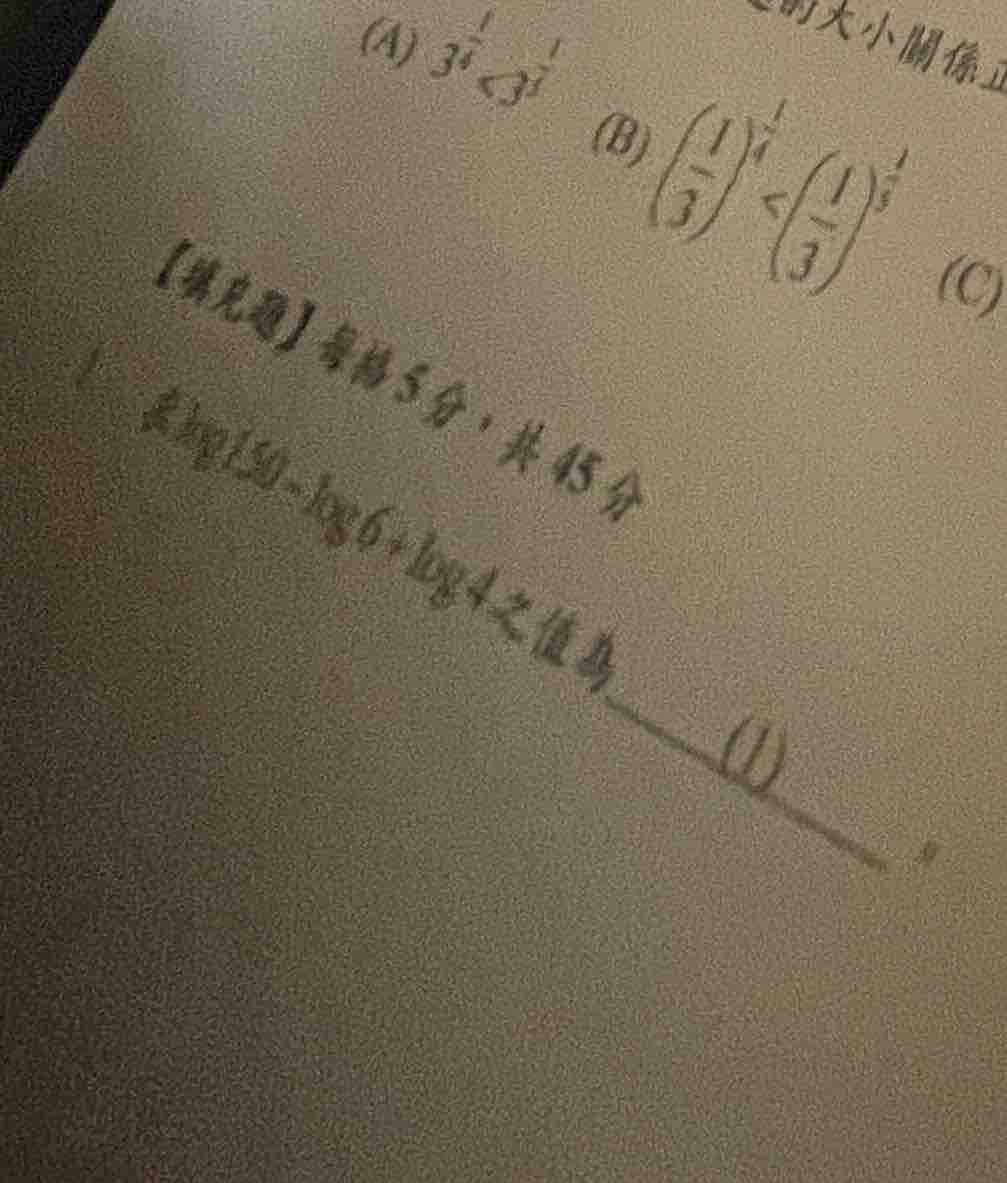 的大小關係正
(A) 3^{1/4} < 3^{1/5} (B) (1/3)^{1/4} < (1/3)^{1/5} (C)
【填充題】每格5分，共45分
1 求log150-log6+log4之值為 (1) 。